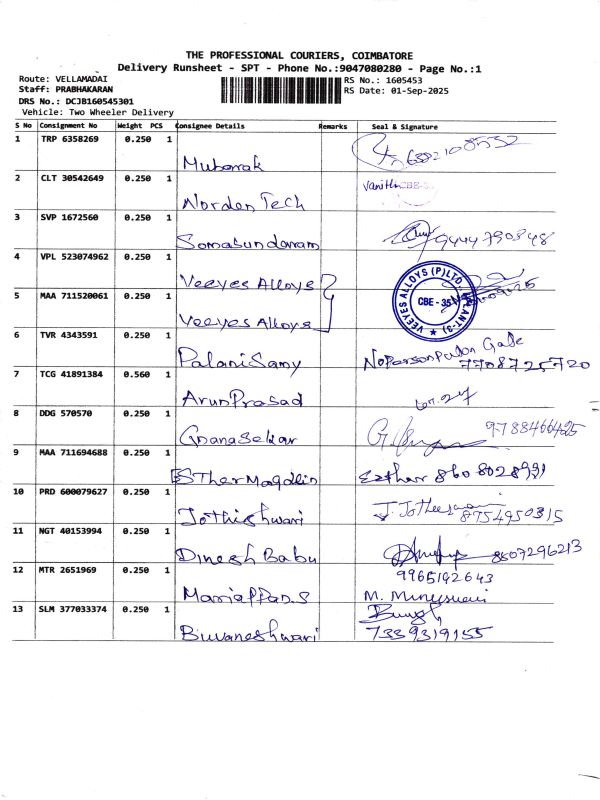 THE PROFESSIONAL COURIERS, COIMBATORE
Delivery Runsheet - SPT - Phone No.:9047080280 - Page No.:1
Route: VELLAMADAI
RS No.: 1605453
Staff: PRABHAKARAN
RS Date: 01-Sep-2025
DRS No.: DCJB160545301
Vehicle: Two Wheeler Delivery
S No Consignment No Weight PCS Consignee Details Remarks Seal & Signature
1 TRP 6358269 0.250 1 Mubarak 6382108532
2 CLT 30542649 0.250 1 Norden Tech Vanith CBE-3
3 SVP 1672560 0.250 1 Somasundaram 9444790848
4 VPL 523074962 0.250 1 Veeyes Alloys
VEEYES ALLOYS (P) LTD. CBE - 35
5 MAA 711520061 0.250 1 Veeyes Alloys
6 TVR 4343591 0.250 1 PalaniSamy No Person Gate
7708725720
7 TCG 41891384 0.560 1 ArunPrasad
8 DDG 570570 0.250 1 GnanaSekar 9788466425
9 MAA 711694688 0.250 1 ESTher Magdlin Ezthar 860 8028991
10 PRD 600079627 0.250 1 Jothishwari J. Jotheeswari
8754950315
11 NGT 40153994 0.250 1 Dinesh Babu 8507296213
12 MTR 2651969 0.250 1 Mariappan.S 9965192643
13 SLM 377033374 0.250 1 Buvaneshwari 7339319155